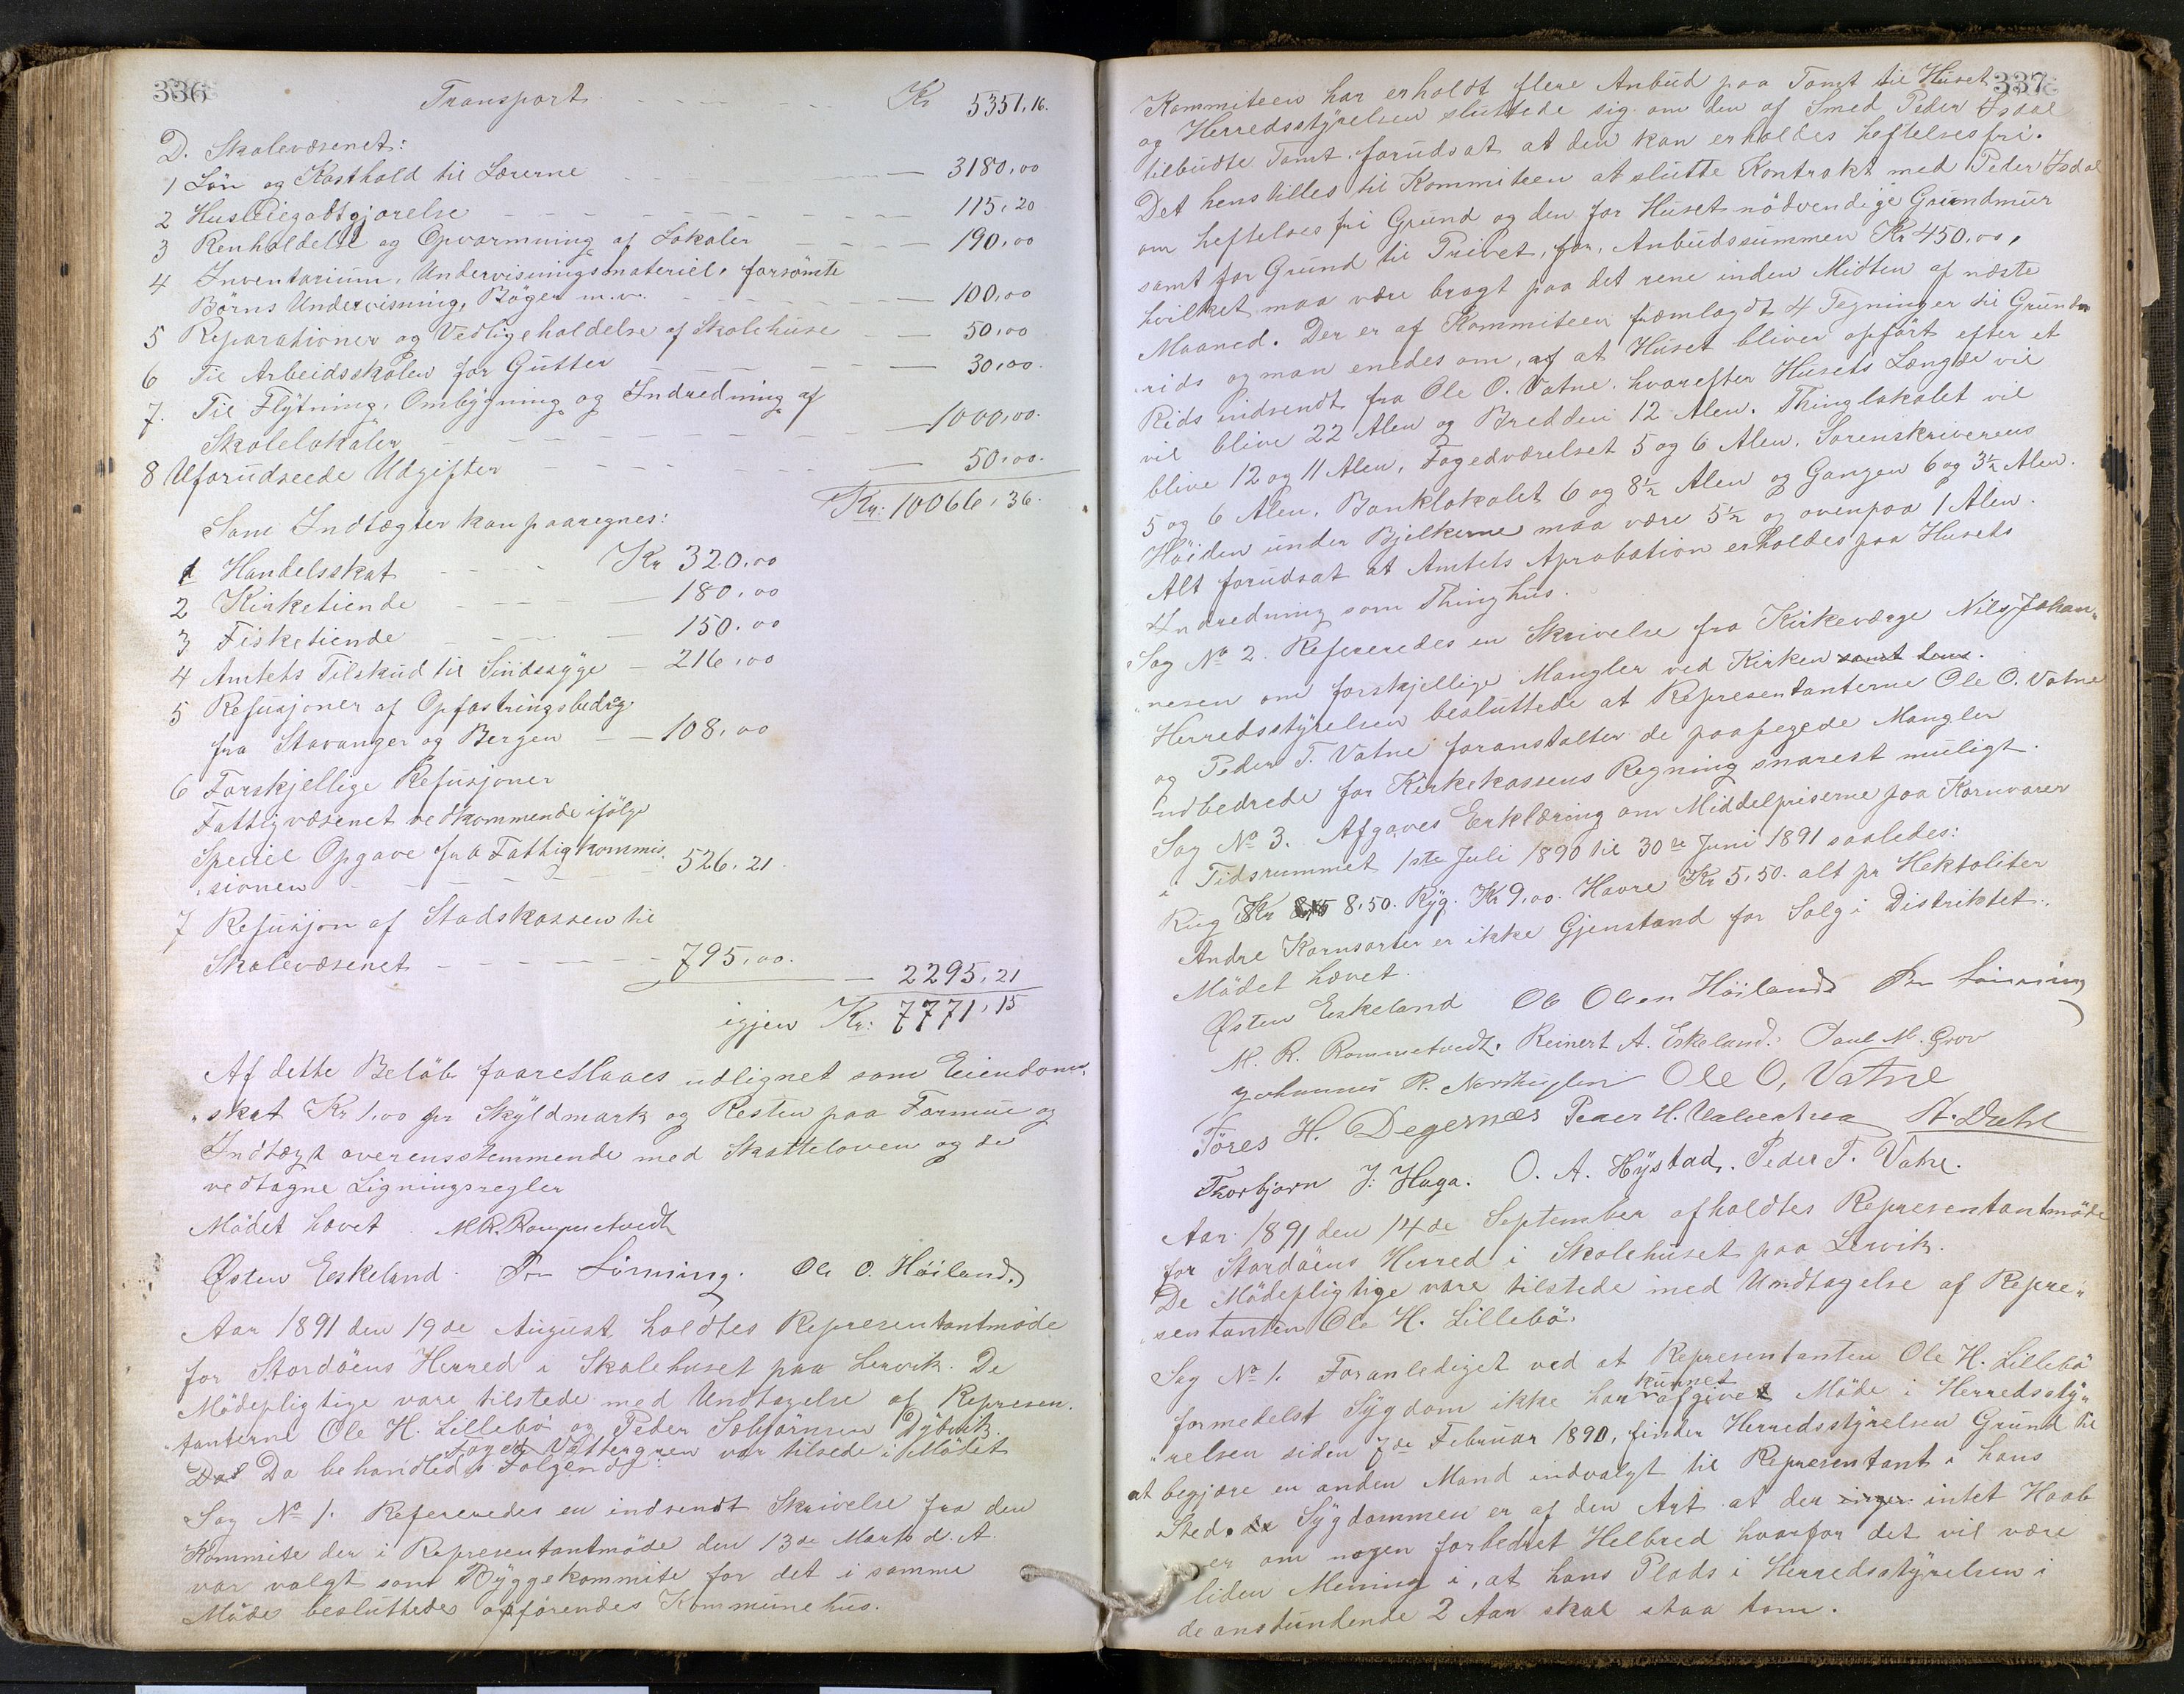 336
Transport - - - - - - Kr 5351,16.
D. Skolevæsenet:
1 Løn og Kosthold til Lærerne - - - 3180,00
2 Husleiegodtgjørelse - - - - 115,20
3 Renholdelse og Opvarmning af Lokaler - - - 190,00
4 Inventarium, Undervisningsmateriel, forsømte
Børns Undervisning, Bøger m.v. - - - 100,00
5 Reparationer og Vedligeholdelse af Skolehuse - - 50,00
6 Til Arbeidsskolen for Gutter - - - 30,00.
7. Til Flytning, Ombygning og Indredning af
Skolelokaler - - - - 1000,00.
8 Uforudseede Udgifter - - - - 50,00.
Kr: 10066,36.
Som Indtægter kan paaregnes:
1 Handelsskat - - - Kr 320,00
2 Kirketiende - - - 180,00
3 Fisketiende - - - 150,00
4 Amtets Tilskud til Sindssyge - 216,00
5 Refusjoner af Opfostringsbedrg
fra Stavanger og Bergen - - 108,00
6 Forskjellige Refusjoner
Fattigvæsenet vedkommende ifølge
Speciel Opgave fra Fattigkommis„
„sionen - - - - 526,21.
7 Refusjon af Stadskassen til
Skolevæsenet - - - - 795,00.
- 2295,21
igjen Kr: 7771,15
Af dette Beløb foareslaaes udlignet som Eiendoms„
„skat Kr 1,00 pr Skyldmark og Resten paa Formue og
Indtægt overensstemmende med Skatteloven og de
vedtagne Ligningsregler
Mødet hævet. M R. Rommetvedt
Østen Eskeland. Pr Lønning. Ole O. Høiland.
Aar 1891 den 19de August holdtes Representantmøde
for Stordøens Herred i Skolehuset paa Lervik. De
Mødepligtige vare tilstede med Undtagelse af Represen„
„tanterne Ole H. Lillebø og Peder Sobjørnsen Dybvik.
Foged Vettergren var tilsede i Mødet
Det Da behandledes Følgende
Sag No 1. Refereredes en indsendt Skrivelse fra den
Kommite der i Representantmøde den 13de Marts d. A.
var valgt som Byggekommite for det i samme
Møde besluttedes opførendes Kommunehus.
337
Kommiteen har erholdt flere Anbud paa Tomt til Huset
og Herredsstyrelsen sluttede sig om den af Smed Peder Isdal
tilbudte Tomt, forudsat at den kan erholdes heftelsesfri.
Det henstilles til Kommiteen at slutte Kontrakt med Peder Isdal
om heftelsesfri Grund og den for Huset nødvendige Grundmur
samt for Grund til Privet, for Anbudssummen Kr 450,00,
hvilket maa være bragt paa det rene inden Midten af næste
Maaned. Der er af Kommiteen fremlagdt 4 Tegninger til Grund„
„rids og man enedes om, af at Huset bliver opført efter et
Rids indsendt fra Ole O. Vatne, hvorefter Husets Længde vil
vil blive 22 Alen og Bredden 12 Alen. Thinglokalet vil
blive 12 og 11 Alen, Fogedværelset 5 og 6 Alen, Sorenskriverens
5 og 6 Alen, Banklokalet 6 og 8½ Alen og Gangen 6 og 3½ Alen.
Høiden under Bjelkerne maa være 5½ og ovenpaa 1 Alen.
Alt forudsat at Amtets Aprobation erholdes paa Husets
Indredning som Thinghus.
Sag No 2. Refereredes en Skrivelse fra Kirkeværge Nils Johan„
„nesen om forskjellige Mangler ved Kirken samt dens.
Herredsstyrelsen besluttede at Representanterne Ole O. Vatne
og Peder T. Vatne foranstalter de paapegede Mangler
udbedrede for Kirkekassens Regning snarest muligt.
Sag No 3. Afgaves Erklæring om Middelpriserne paa Kornvarer
i Tidsrummet 1ste Juli 1890 til 30te Juni 1891 saaledes:
Rug Kr 8,50. Byg. Kr 9,00. Havre Kr 5,50. alt pr Hektoliter
Andre Kornsorter er ikke Gjenstand for Salg i Distriktet.
Mødet hævet.
Østen Eskeland Ole Olsen Høiland Pr Lønning
M. R. Rommetvedt. Reinert A. Eskeland. Paul M. Grov
Johannes R. Nordhuglen Ole O, Vatne
Tøres H. Degernæs Peder H. Valvatna H. Dahl
Thorbjørn J. Haga. O. A. Hystad. Peder T. Vatne.
Aar 1891 den 14de September afholdtes Representantmøde
for Stordøens Herred i Skolehuset paa Lervik.
De Mødepligtige vare tilstede med Undtagelse af Repre„
sentanten Ole H. Lillebø.
Sag No 1. Foranlediget ved at Representanten Ole H. Lillebø
formedelst Sygdom ikke har kunnet afgivet Møde i Herredssty„
„relsen siden 7de Februar 1890, finder Herredsstyrelsen Grund til
at begjære en anden Mand indvalgt til Representant i hans
Sted. da Sygdommen er af den Art at der ingen intet Haab
er om nogen forbedret Helbred hvorfor det vil være
liden Mening i, at hans Plads i Herredsstyrelsen i
de anstundende 2 Aar skal staa tom.